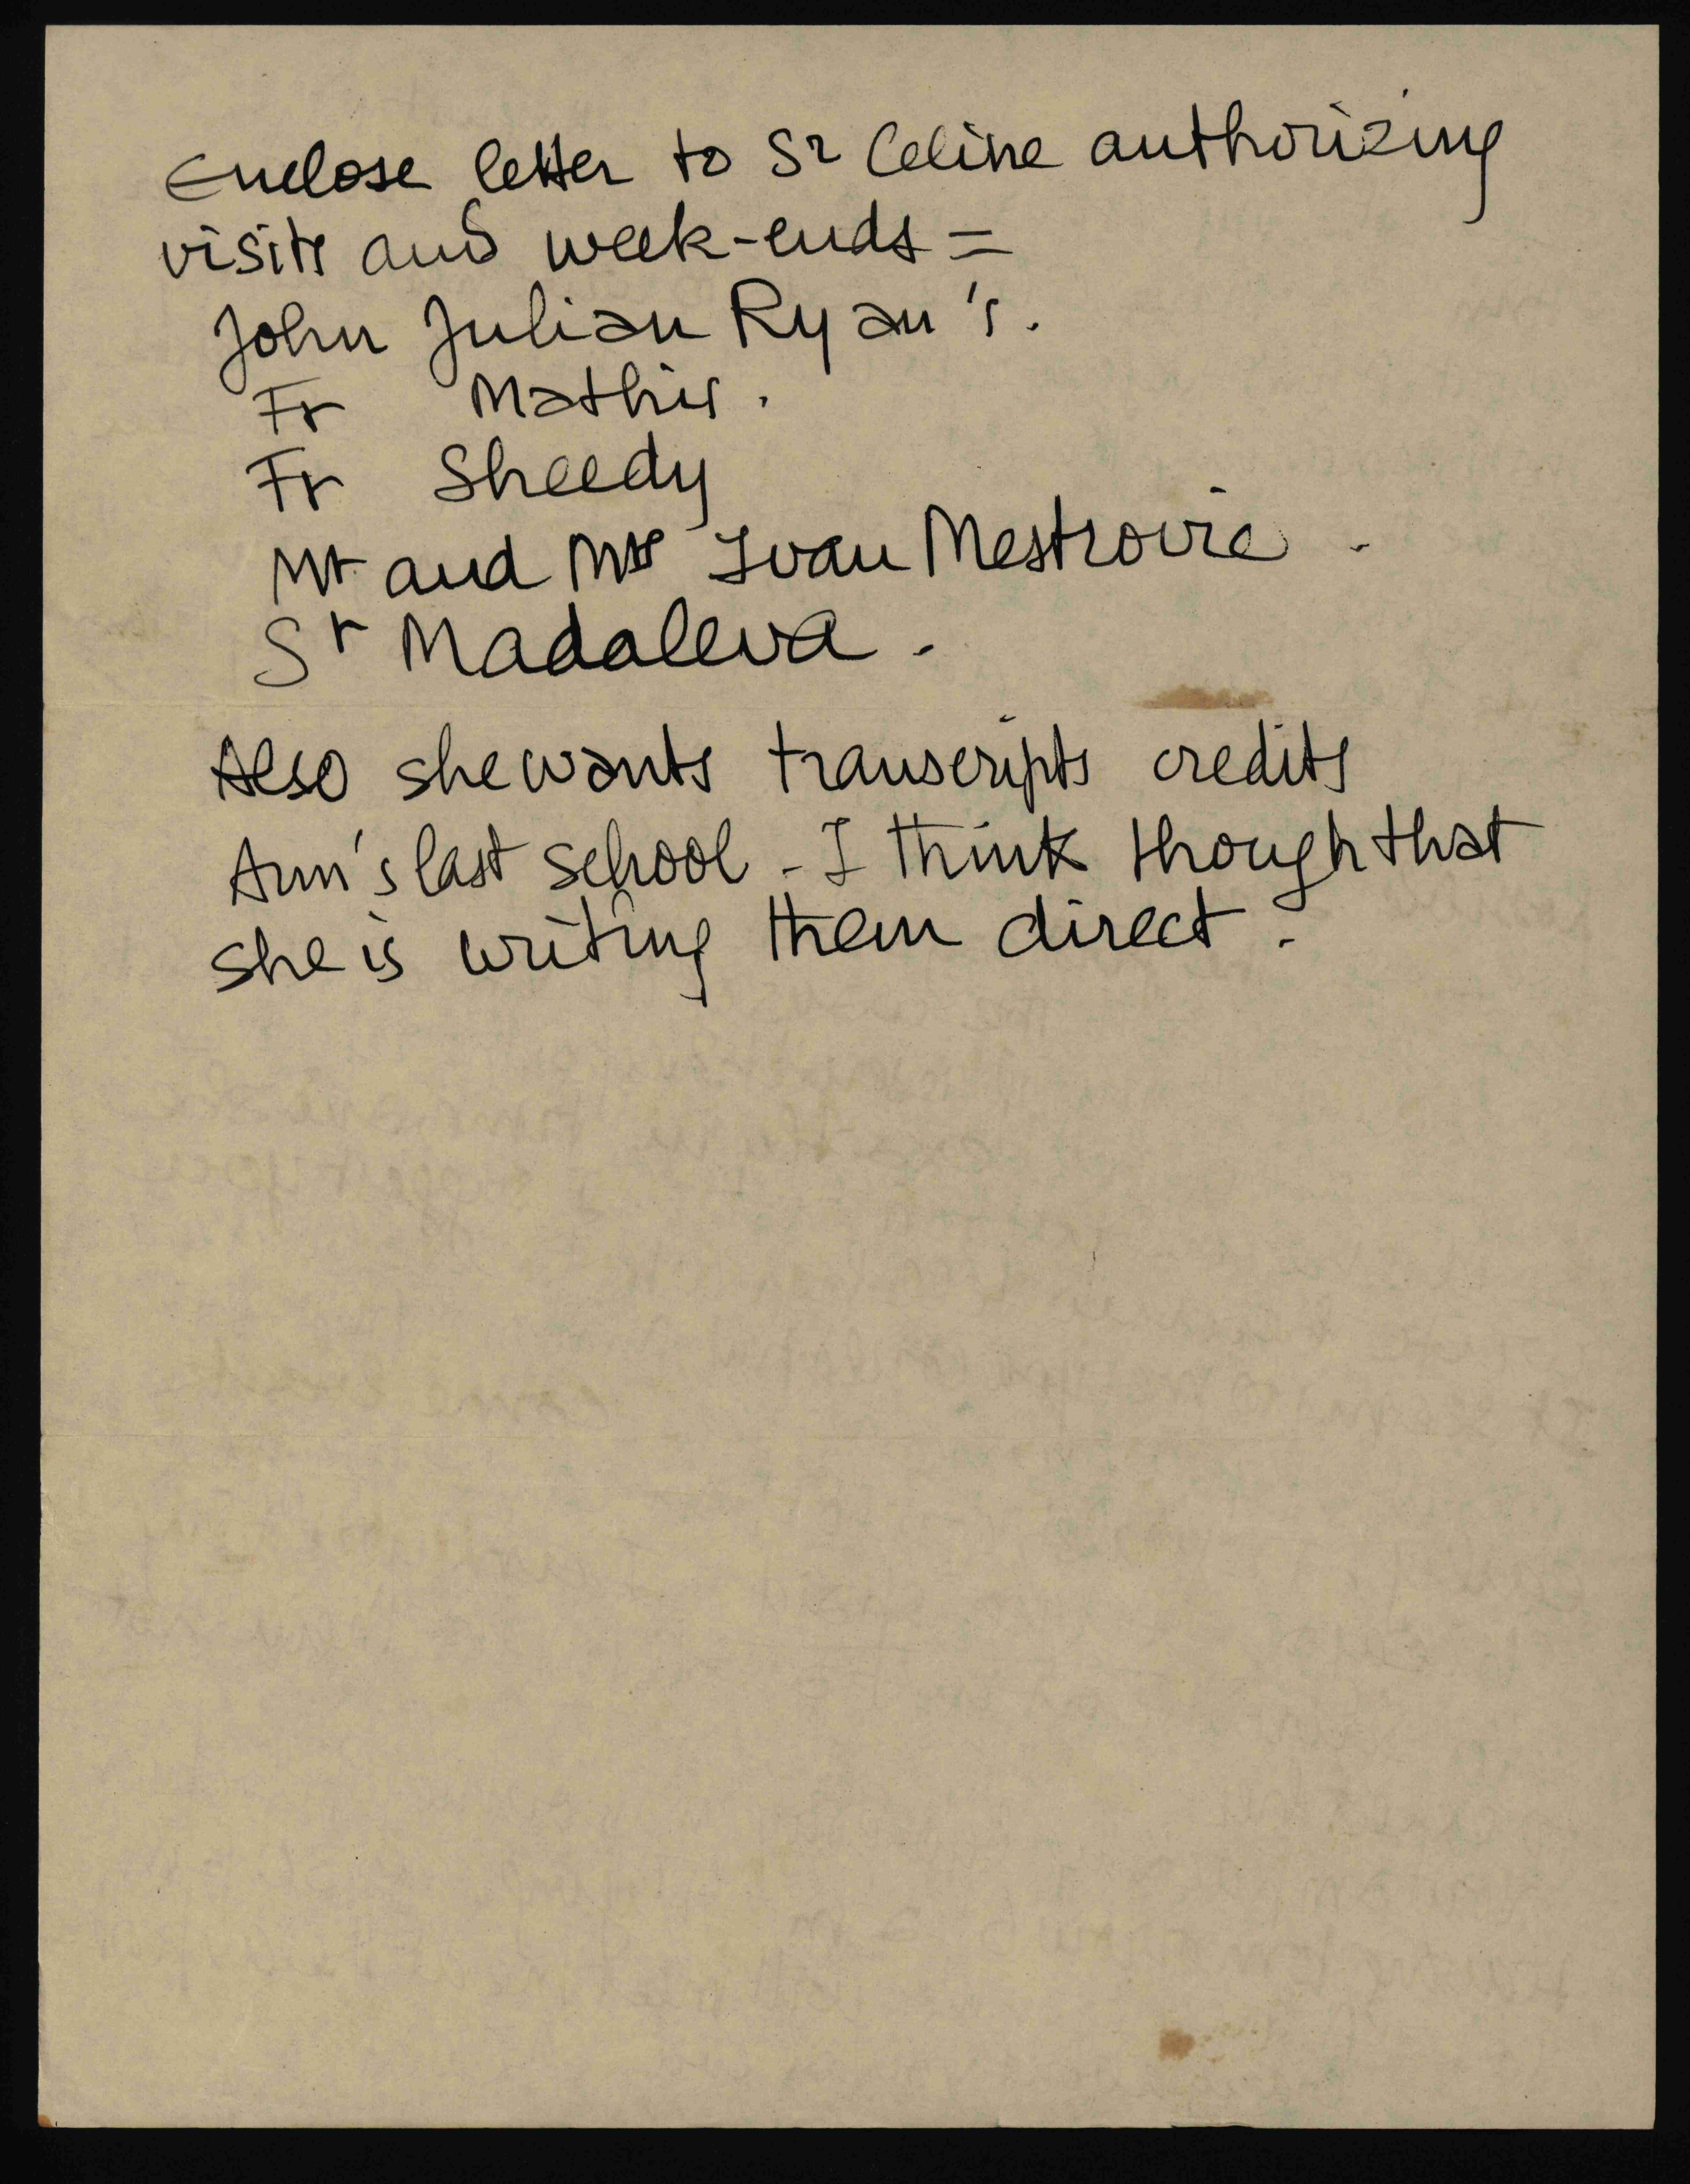 Enclose letter to Sr Celine authorizing
visits and week-ends =
John Julian Ryan's.
Fr Mathis.
Fr Sheedy
Mr and Mrs Ivan Mestrovic.
Sr Madaleva.
Also she wants transcripts credits
Ann's last school - I think though that
she is writing them direct.